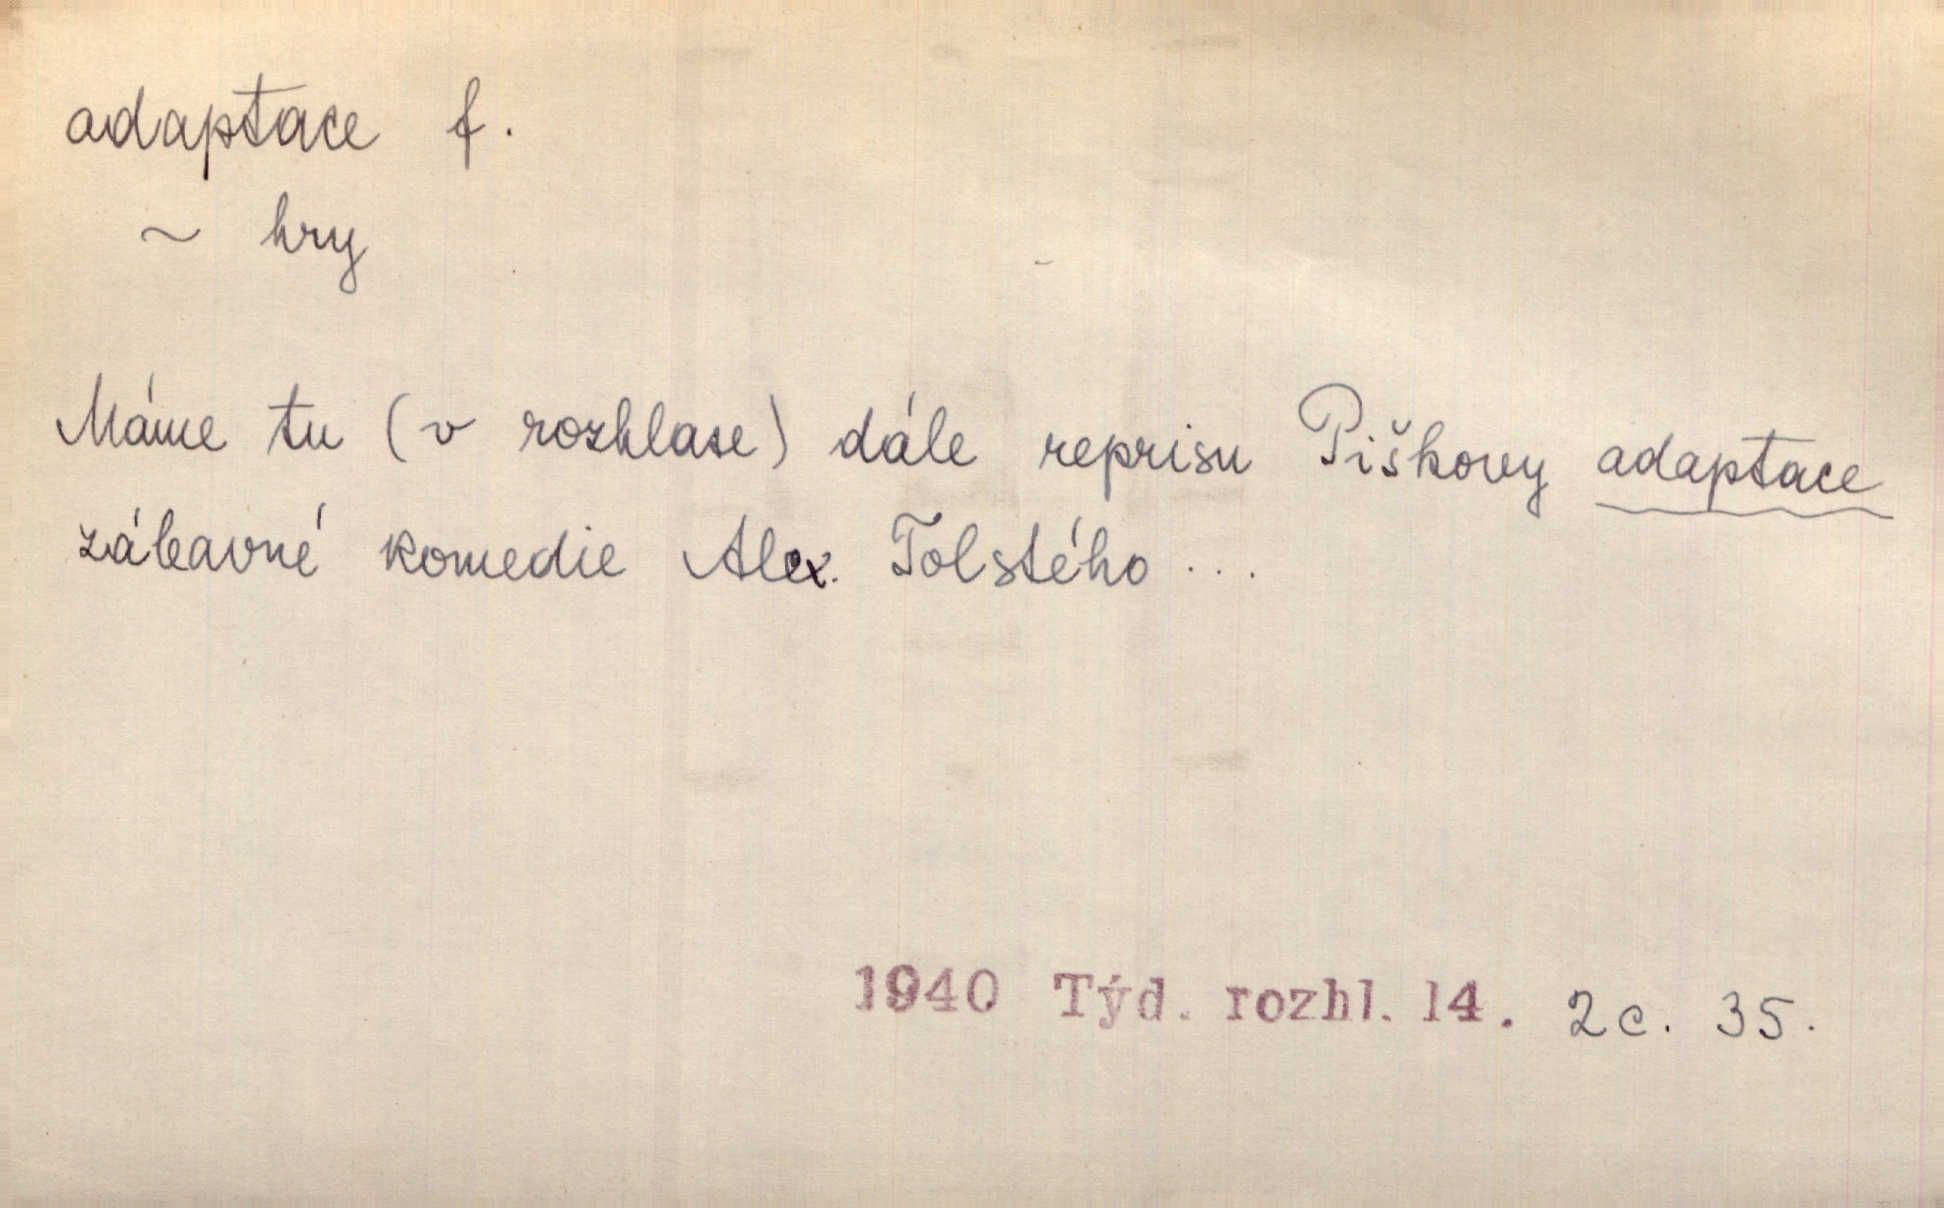 adaptace f.
~ hry
Máme tu (v rozhlase) dále reprisu Piškovy adaptace
zábavné komedie Alex. Tolstého ...
1940 Týd. rozhl. 14. 2c. 35.